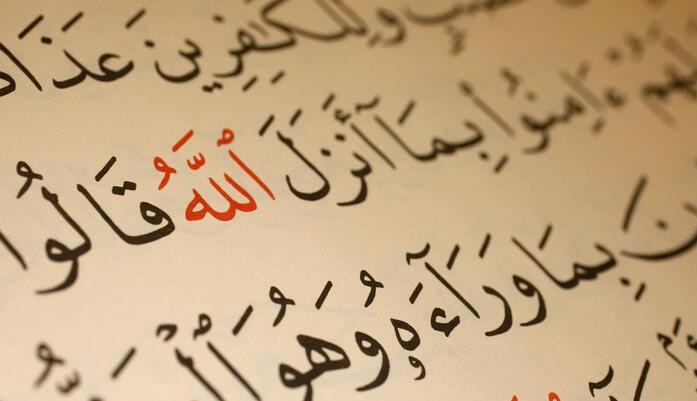 وَلِلْكَٰفِرِينَ عَذَا
لَهُمْ ءَامِنُوا۟ بِمَآ أَنزَلَ ٱللَّهُ قَالُوا۟
نَ بِمَا وَرَآءَهُۥ وَهُوَ ٱلْ